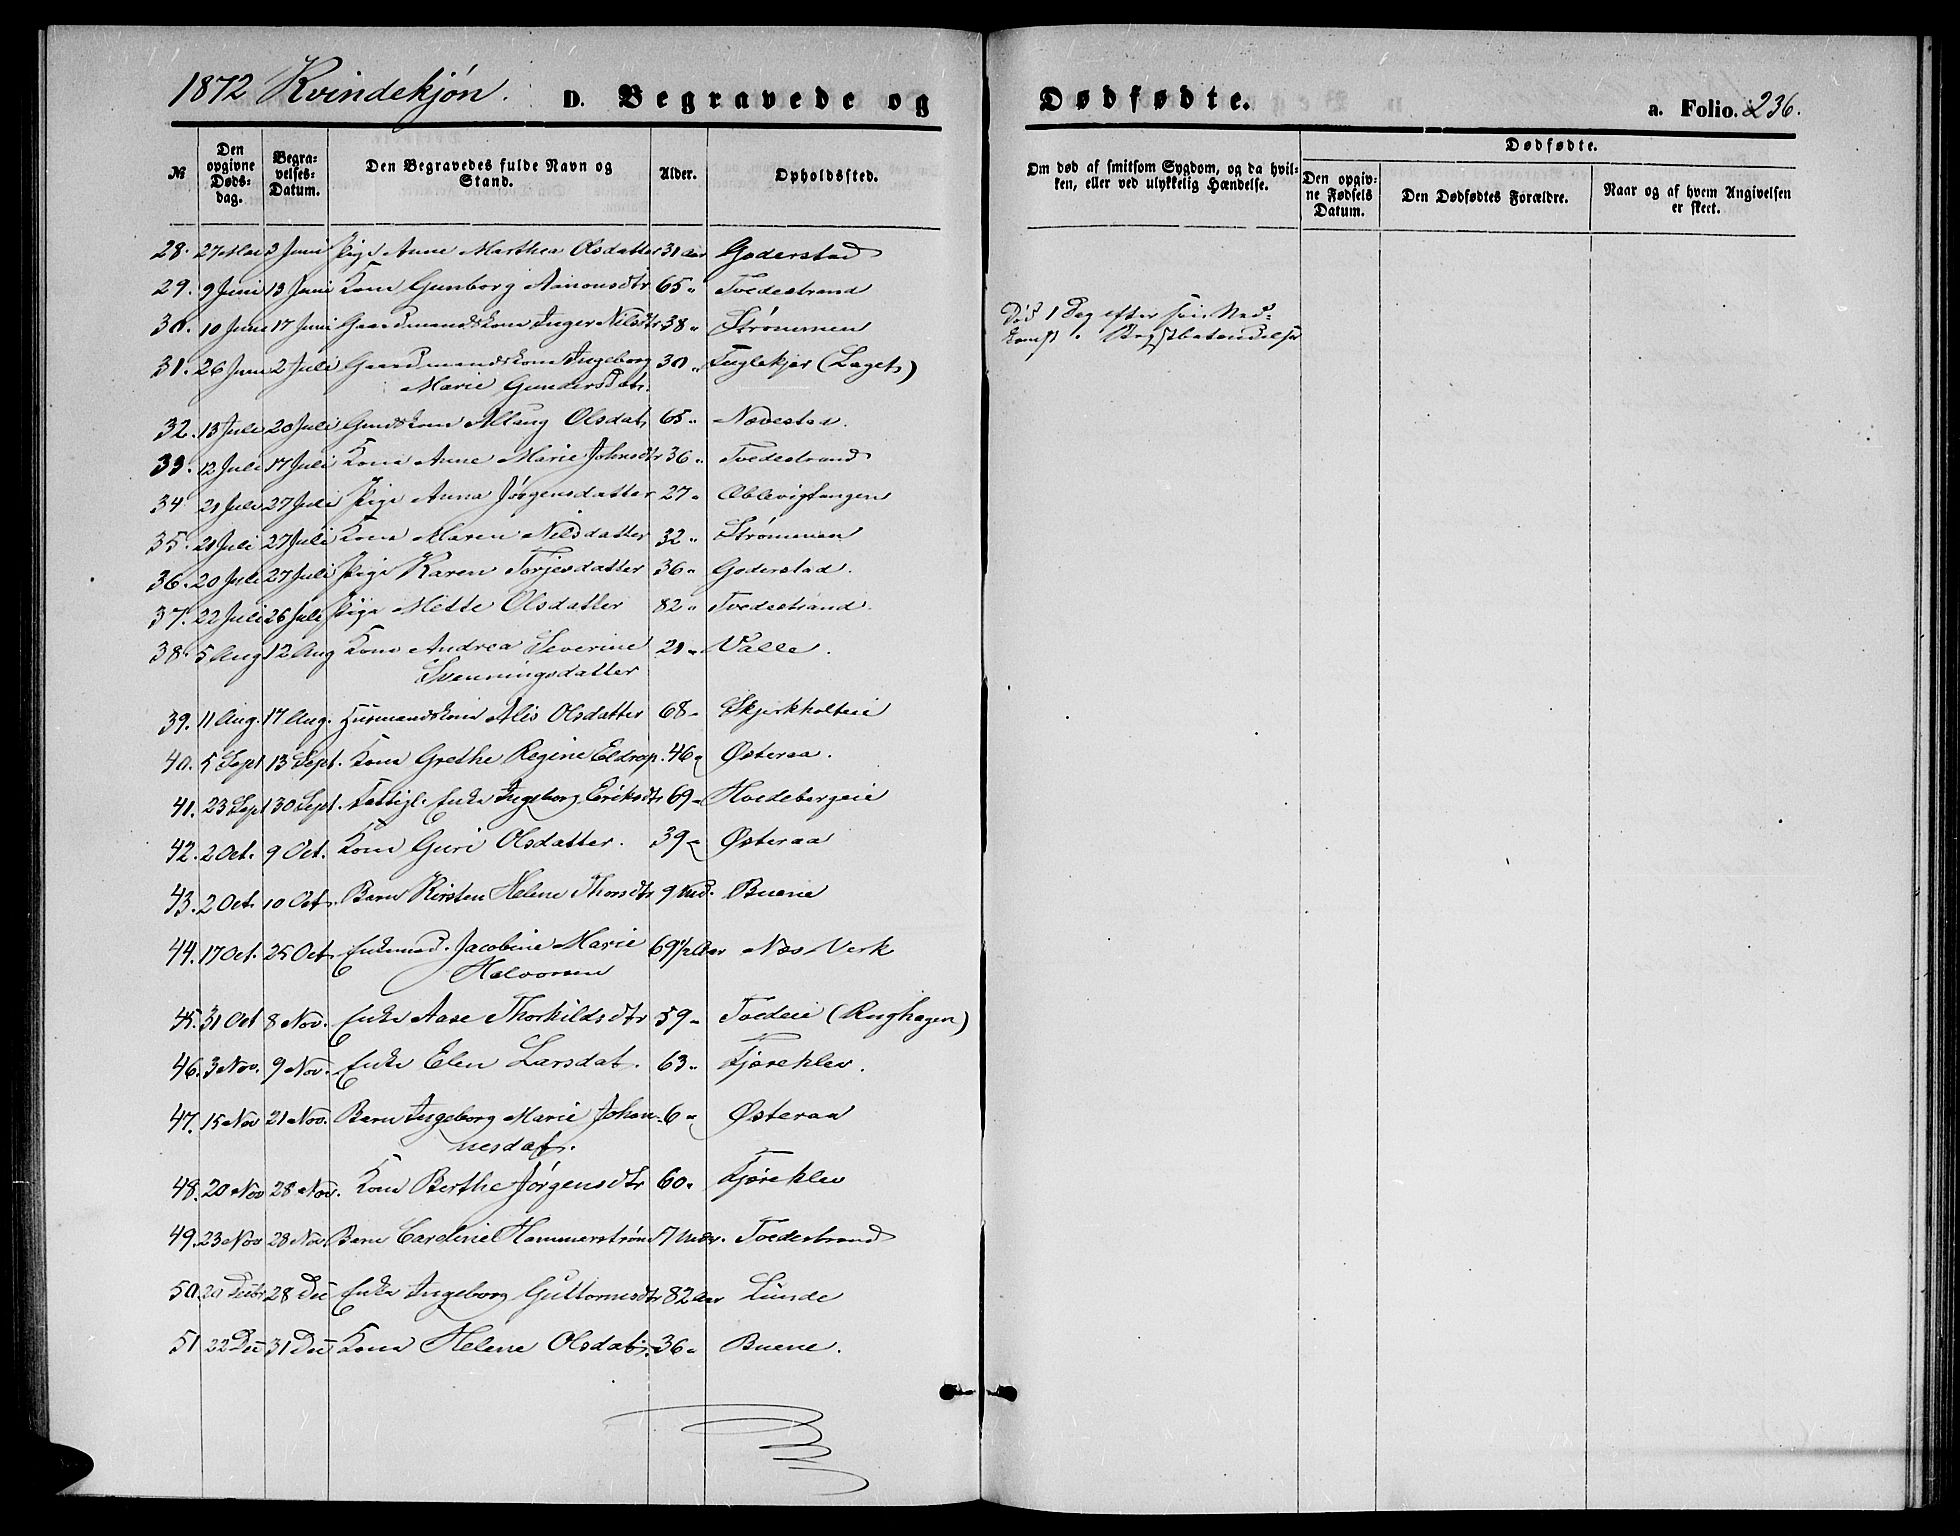 1872 Kvindekjøn. D. Begravede og Dødfødte. a. Folio. 236.
№ Den opgivne Døds-dag. Begra-velses-Datum. Den Begravedes fulde Navn og Stand. Alder. Opholdssted. Om død af smitsom Sygdom, og da hvil-ken, eller ved ulykkelig Hændelse. Dødfødte. Den opgiv-ne Fødsels Datum. Den Dødfødtes Forældre. Naar og af hvem Angivelsen er skeet.
28. 27 Mai 2 Juni Pige Anne Marthea Olsdatter 31 aar Goderstad
29. 9 Juni 13 Juni Kone Gunborg Aanonsdtr 65 " Tvedestrand
30. 10 Juni 17 Juni Gaardmandskone Inger Nilsdtr 38 " Strømmen Død 1 Dag efter sin Ned-
komst. Brystbetændelse
31. 26 Juni 2 Juli Gaardmandskone Ingeborg 30 " Fuglekjær (Laget)
Marie Gundersdat.
32. 13 Juli 20 Juli Gmdskone Allaug Olsdat. 65 " Nævestad.
33. 12 Juli 17 Juli Kone Anne Marie Johnsdtr 36 " Tvedestrand
34 21 Juli 27 Juli Pige Anna Jørgensdatter 27 " Oblevigtangen
35. 21 Juli 27 Juli Kone Maren Nilsdatter 32 " Strømmen
36. 20 Juli 27 Juli Pige Karen Torjesdatter 36 " Goderstad.
37. 22 Juli 26 Juli Pige Mette Olsdatter 82 " Tvedestrand.
38. 5 Aug 12 Aug Kone Andrea Severine 21 " Valle.
Svenningsdatter
39. 11 Aug. 17 Aug. Husmandskone Alis Olsdatter 68 " Skjerkholteie
40. 5 Sept 13 Sept. Kone Grethe Regine Eldrop. 46 " Østeraa.
41. 23 Sept 30 Sept. Fattigl. Enke Ingeborg Eriksdtr 69 " Hvedebergeie
42. 2 Oct. 9 Oct. Kone Guri Olsdatter. 39 " Østeraa
43. 2 Oct. 10 Oct. Barn Kirsten Helene Thorsdtr 9 Md. Buene
44. 17 Oct. 25 Oct. Enkemad. Jacobine Marie 69½ Aar Næs Verk
Halvorsen
45. 31 Oct 8 Nov. Enke Aase Thorkildsdtr 59 " Tvedeie (Rughagen)
46. 3 Nov. 9 Nov. Enke Elen Larsdat. 63 " Fjæreklev.
47. 15 Nov 21 Nov. Barn Ingeborg Marie Johan- 6 " Østeraa
nesdat.
48. 20 Nov 28 Nov. Kone Berthe Jørgensdtr 60 " Fjæreklev
49. 23 Nov 28 Nov. Barn Caroline Hammerstrøm 7 Mdr. Tvedestrand
50. 20 Decbr 28 Dec Enke Ingeborg Guttormsdtr 82 Aar Lunde
51 22 Dec 31 Dec Kone Helene Olsdat. 36 " Buene.